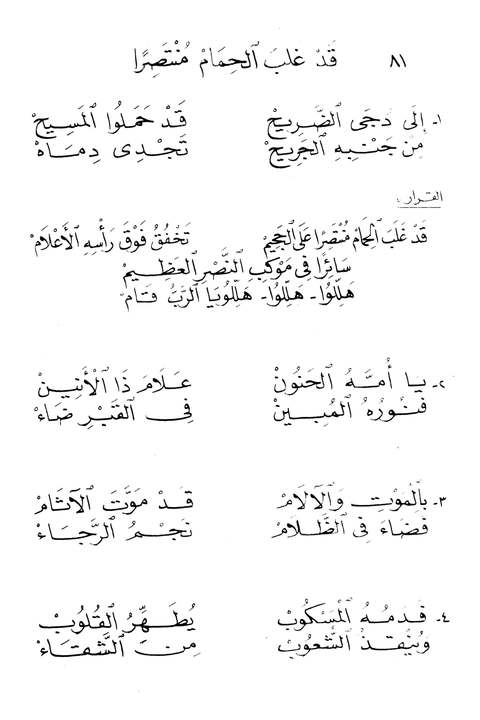 ٨١ قَدْ غَلبَ ٱلحِمَامْ مُنْتَصِرًا
١- إِلَى دُجَى ٱلضَّرِيحْ قَدْ حَمَلُوا ٱلمَسِيحْ
مِن جَنْبِهِ ٱلجَرِيحْ تَجْدِى دِمَاهْ
القرار :
قَدْ غَلَبَ ٱلحِمَامْ مُنْتَصِرًا عَلَى ٱلجَحِيمْ تَخْفُقُ فَوْقَ رَأْسِهِ ٱلأَعْلَامْ
سَائِرًا فِى مَوْكِبِ ٱلنَّصْرِ ٱلعَظِيمْ
هَلِّلُوا - هَلِّلُوا - هَلِّلُويَا ٱلرَّبُّ قَامْ
٢- يَا أُمَّهُ ٱلحَنُونْ عَلَامَ ذَا ٱلأَنِينْ
فَنُورُهُ ٱلمُبِينْ فِى ٱلقَبْرِ ضَاءْ
٣- بِٱلمَوْتِ وَٱلآلَامْ قَدْ مَوَّتَ ٱلآثَامْ
فَضَاءَ فِى ٱلظَّلَامْ نَجْمُ ٱلرَّجَاءْ
٤- فَدَمُهُ ٱلمَسْكُوبْ يُطَهِّرُ ٱلقُلُوبْ
وَيُنْقِذُ ٱلشُّعُوبْ مِنَ ٱلشَّقَاءْ